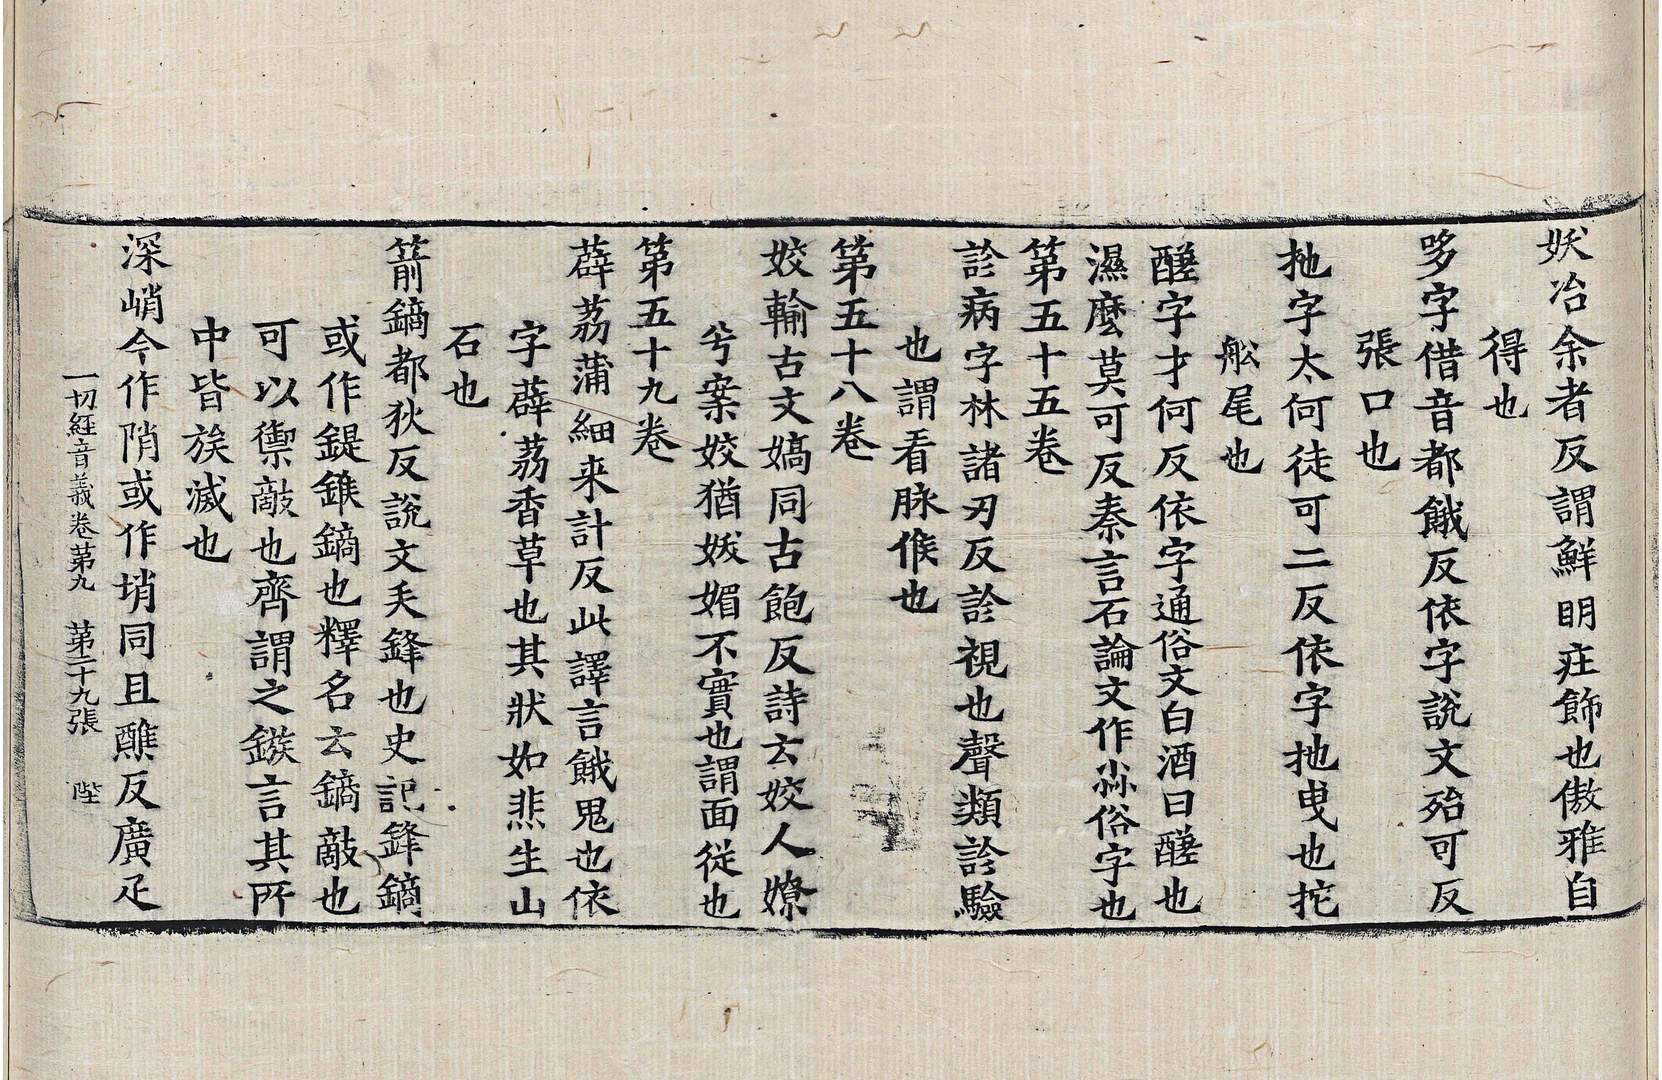 妖冶余者反謂鮮明疰飾也傲雅自
得也
哆字借音都餓反依字說文殆可反
張口也
扡字太何徒可二反依字扡曳也拕
舩尾也
醝字才何反依字通俗文白酒曰醝也
濕麼莫可反秦言石論文作尛俗字也
第五十五卷
診病字林諸刃反診視也聲類診驗
也謂看脉候也
第五十八卷
姣輸古文嬌同古飽反詩云姣人嫽
兮案姣猶妖媚不實也謂面從也
第五十九卷
薜荔蒲細来計反此譯言餓鬼也依
字薜荔香草也其狀如悲生山
石也
箭鏑都狄反說文矢鋒也史記鋒鏑
或作鍉錐鏑也釋名云鏑敵也
可以禦敵也齊謂之鏃言其所
中皆族滅也
一切經音義卷第九 第二十九張 陛
深峭今作陗或作㟋同且醮反廣疋